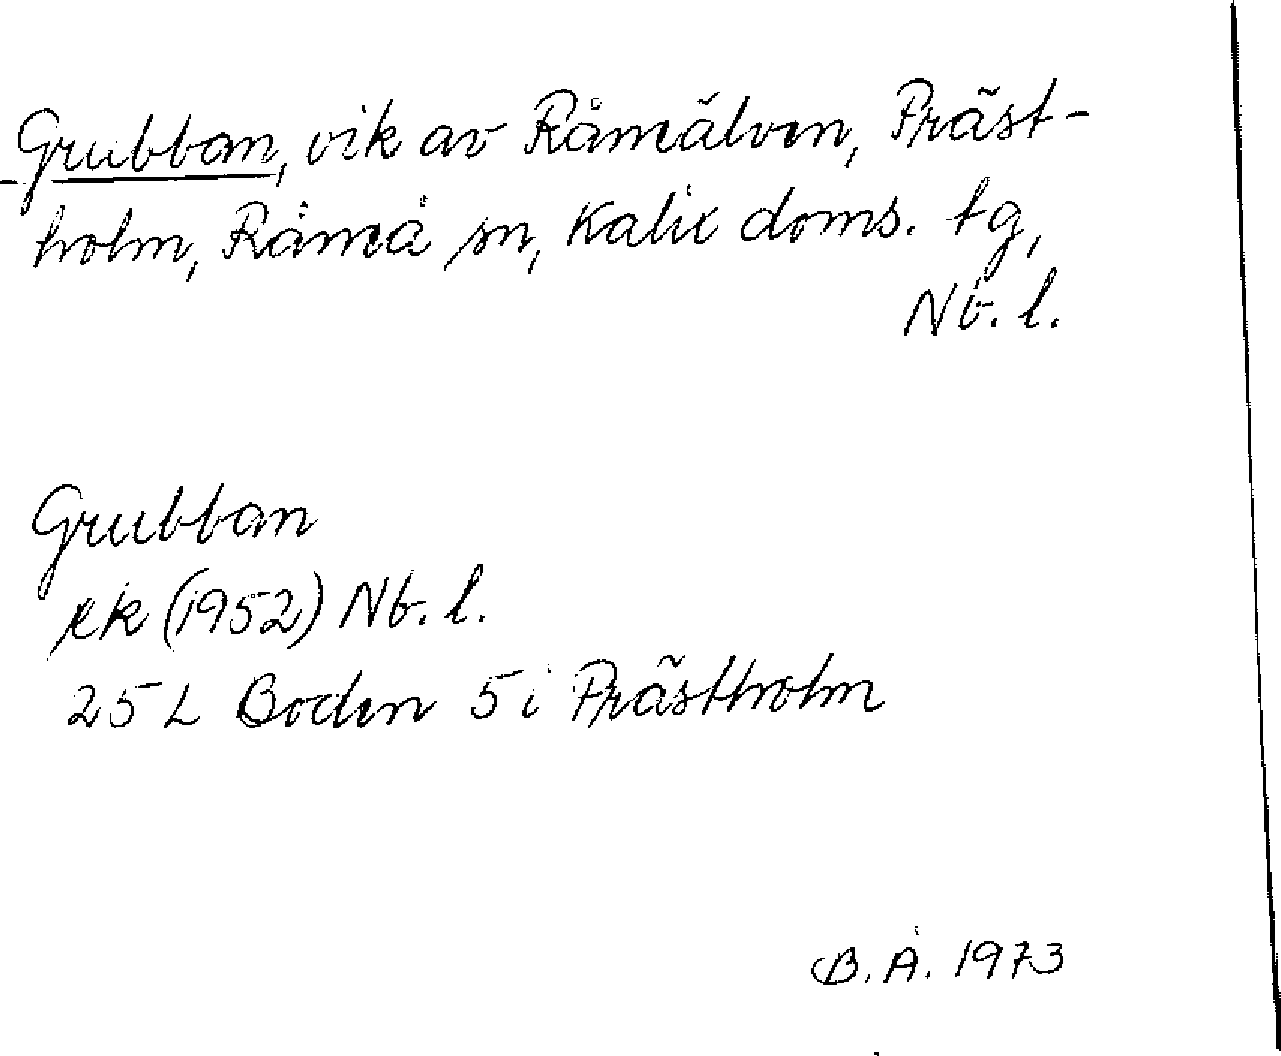 Grubban, vik av Råneälven, Präst-
holm, Råneå sn, Kalix doms. tg,
Nb. l.
Grubban
ek (1952) Nb. l.
25 L Boden 5 i Prästholm
B. Å. 1973